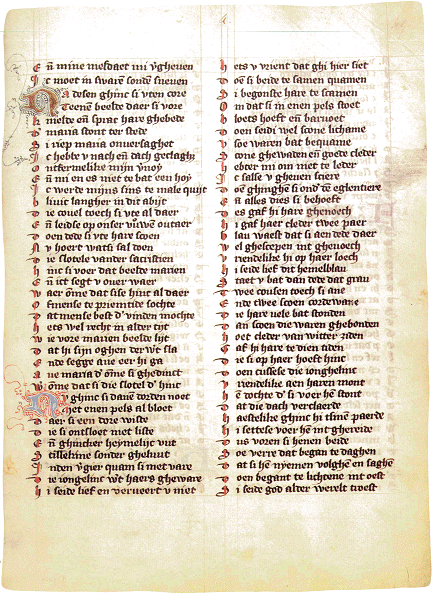 E n̄ mine mesdaet mi v̓gheuen
I c moet in swarē sondē sneuen
N a desen ghinc si vten core
T eenen beelde daer si vore
k nielde en̄ sprac hare ghebede
D maria stont ter stede
S i riep maria onuersaghet
I c hebbe v nach en̄ dach geclaghet
O ntfermelike mijn v̓noy
E n̄ mi en es niet te bat een hoy
I c werde mijns sins te male quijt
b liuic langher in dit abijt
D ie couel toech si vte al daer
E n̄ leidse op onser vrouwē outaer
D oen dede si vte hare scoen
N v hoert watsi sal doen
D ie slotele vander sacristien
h inc si voer dat beelde marien
E n̄ ict segt v ouer waer
w aer om̄e dat sise hinc al daer
O fmense te priemtide sochte
D atmense best d' vinden mochte
h ets wel recht in alder tijt
w ie vore marien beelde lijt
D at hi sijn oghen derw̓t sla
E nde segge aue eer hi ga
A ue maria d' om̄e si ghedinct
w aer om̄e dat si die slotel d' hinc
N v ghinc si danē dorden noet
M et enen pels al bloet
D aer si een dore wiste
D ie si ontsloet met liste
E n̄ ghincker heymelijc vut
S tillekine sonder gheluut
I nden v̓gier quam si met vare
D ie iongelinc w̓t haers gheware
h i seide lief en verueert v niet
h ets v vrient dat ghi hier siet
D oen si beide te samen quamen
S i begonste hare te scamen
O m dat si in enen pels stoet
b loets hoeft en̄ baruoet
D oen seidi wel scone lichame
v soe waren bat bequame
S cone ghewaden en̄ goede cleder
h ebter mi om niet te leder
I c salse v gheuen sciere
D oen ghinghē si ond' dē eglentiere
E n̄ alles dies si behoeft
D es gaf hi hare ghenoech
h i gaf haer cleder twee paer
b lau waest dat si aen dede daer
w el ghescepen int ghenoech
v riendelike hi op haer loech
h i seide lief dit hemelblau
S taet v bat dan dede dat grau
T wee cousen toech si ane
E nde twee scoen cordewane
D ie hare vele bat stonden
D an scoen die waren ghebonden
h oet cleder van witter ziden
G af hi hare te dien tiden
D ie si op haer hoeft hinc
D oen cussese die ionghelinc
v riendelike aen haren mont
h ē dochte d' si voer hē stont
D at die dach verclaerde
h aestelike ghinc hi tsinē paerde
h i settese voer hē int ghereide
D us voren si henen beide
S oe verre dat began te daghen
D at si hē nyemen volghē en saghē
D oen began̄t te lichtene int oest
S i seide god alder werelt troest